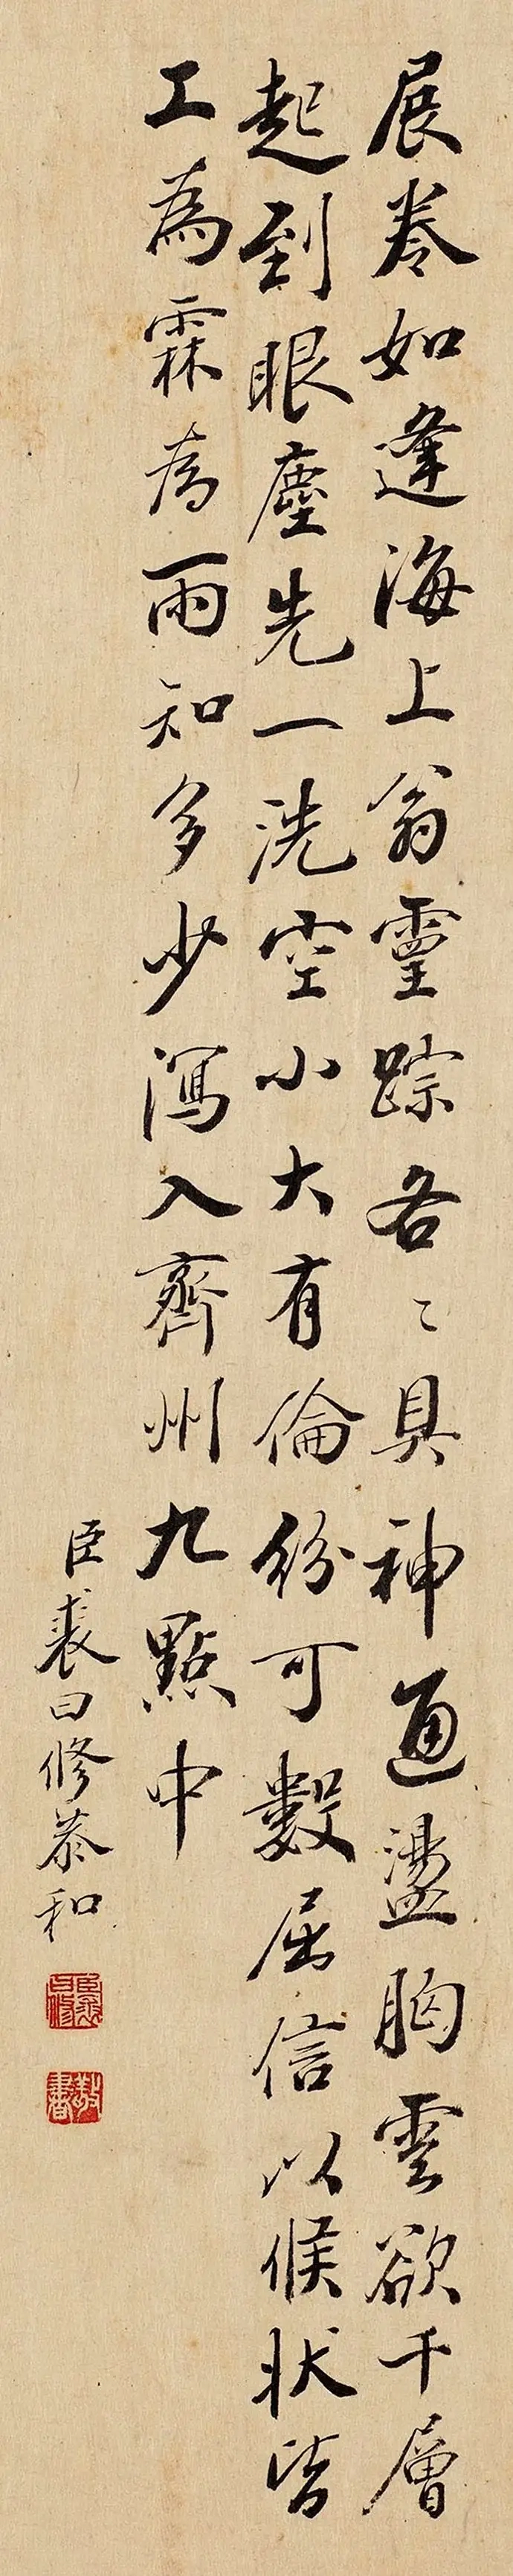 展卷如逢海上翁靈踪各々具神通盪胸雲欲千層
起到眼塵先一洗空小大有倫紛可數屈信以候狀皆
工為霖為雨知多少瀉入齊州九點中
臣裘曰修恭和
臣裘曰修
敬書